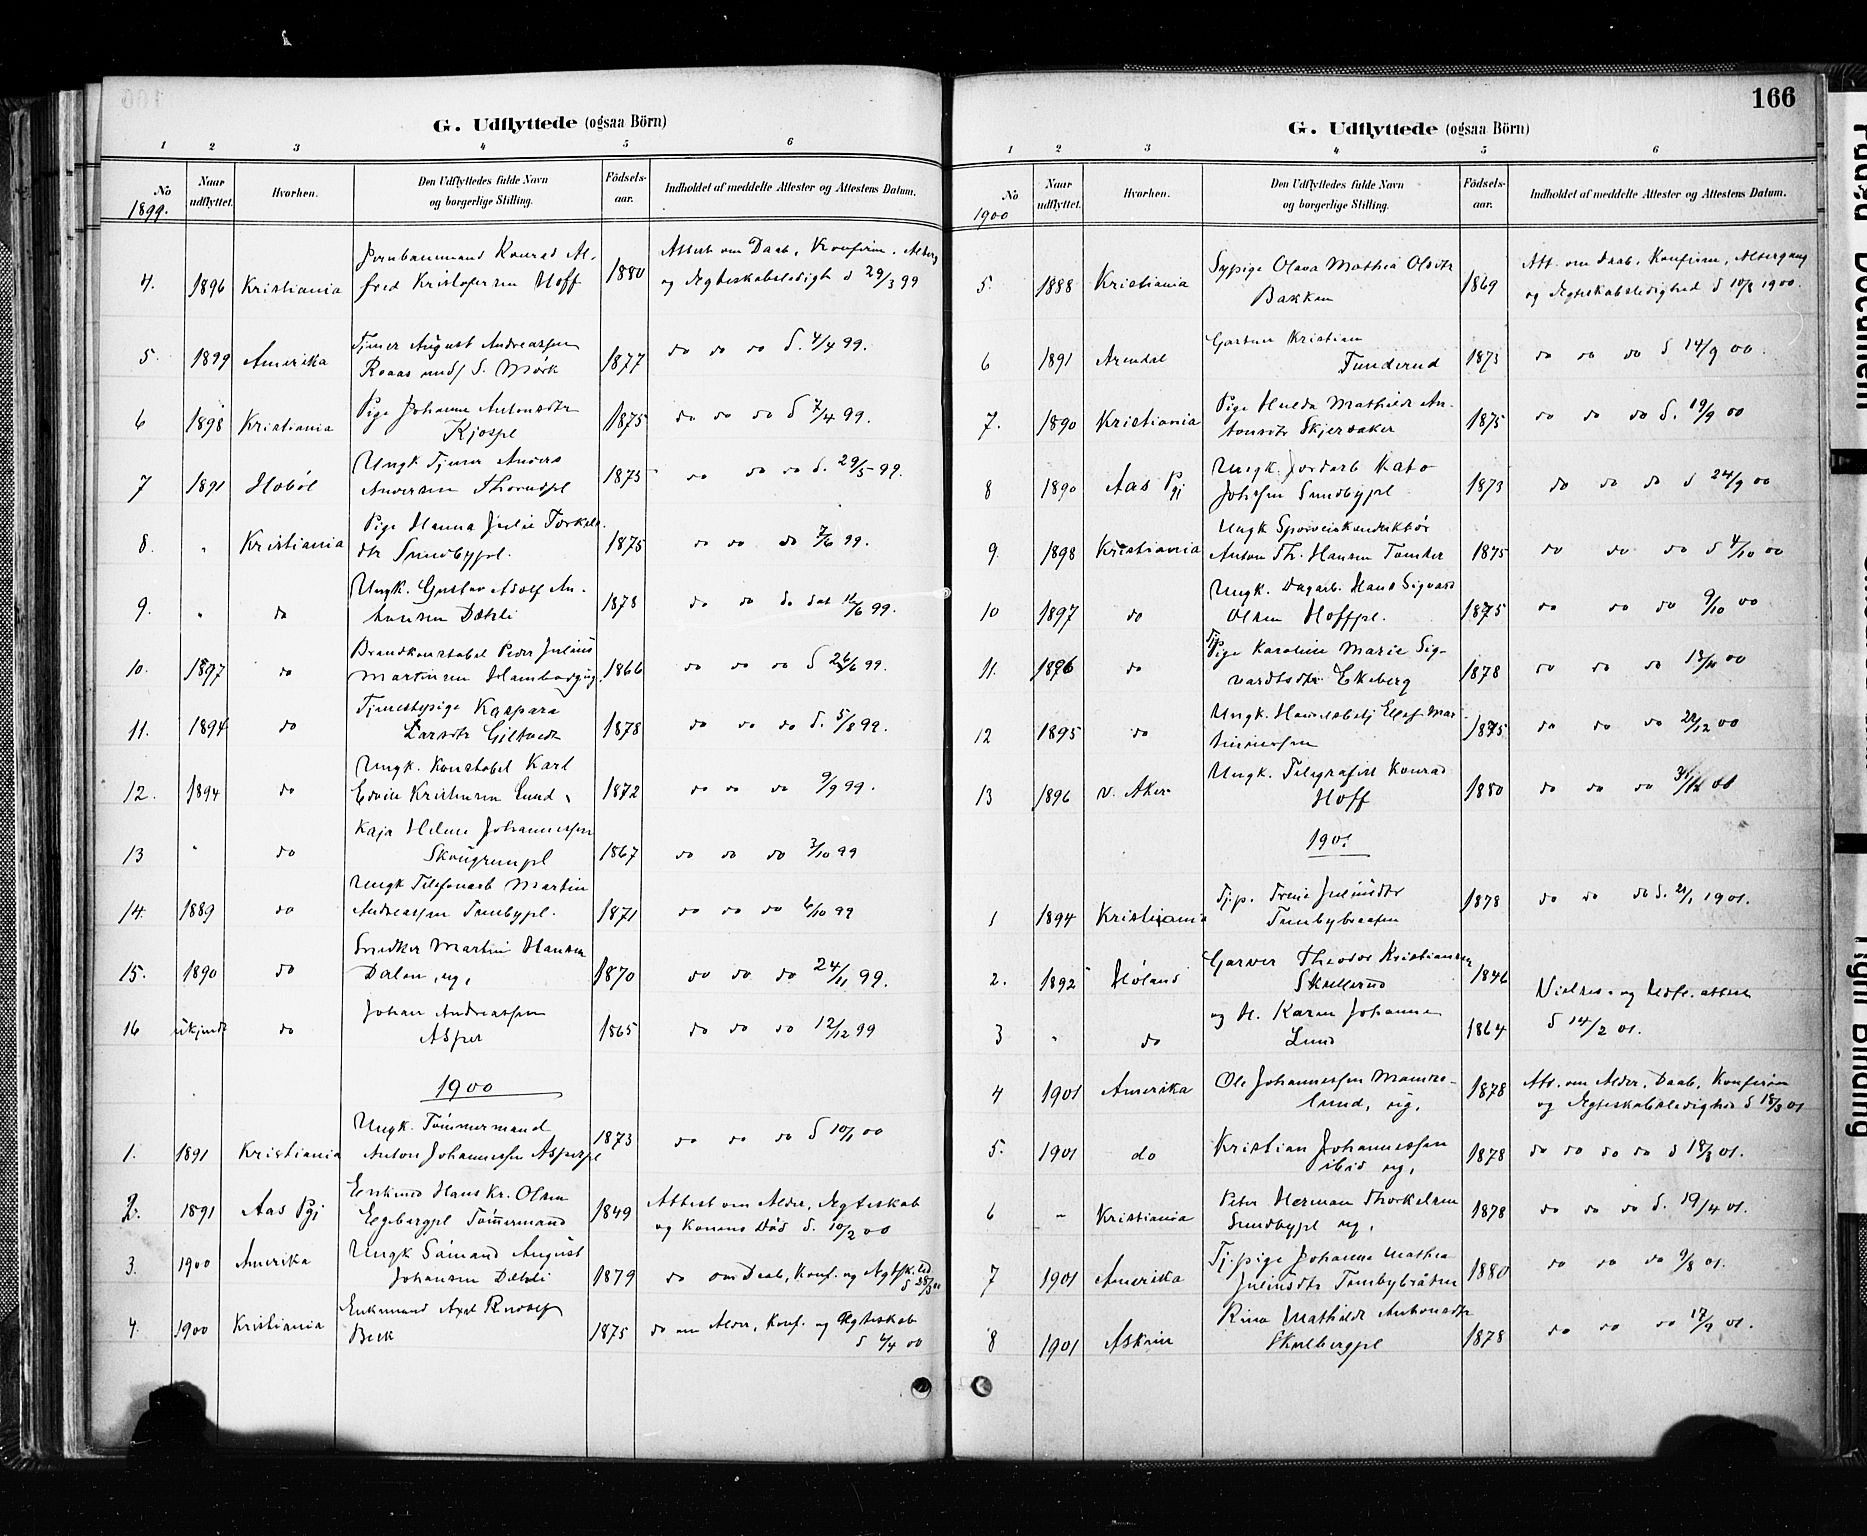 166
G. Udflyttede (ogsaa Börn)
1 2 3 4 5 6
No 1899. Naar udflyttet. Hvorhen. Den Udflyttedes fulde Navn og borgerlige Stilling. Födsels-aar. Indholdet af meddelte Attester og Attestens Datum.
4. 1896 Kristiania Konrad Al- 1880 Attest om Daab, Konfirm.
fred Kristofersen Hoff og Ægteskabsledigh d 29/3 99
5. 1899 Amerika Tjener August Andreassen 1877 do do do d. 4/4 99.
S. Mørk
6 1898 Kristiania Pige Johanne Antonsdtr 1875 do do do d 7/4 99.
7 1891 Hobøl Ungk Tjener Anders 1875 do do do d. 29/5 99.
Andersen
8. " Kristiania Pige Hanna Julie Torkels 1875 do do do 7/6 99.
dtr Sundbypl.
9. " do Ungk. Gustav Adolf An- 1878 do do do dat 12/6 99.
tonsen Dæhli
10. 1897 do Brandkonstabel Peder Julius 1866 do do do d 26/6 99.
Martinsen
11. 1894 do Tjenestepige Kaspara 1878 do do do d. 5/8 99.
Larsdtr Giltvedt
12. 1894 do Ungk. Konstabel Karl 1872 do do do 9/9 99.
Edvin Kristiansen Lund
13 " do Kaja Helene Johannessen 1867 do do do 3/10 99
Skougrumpl
14. 1889 do Ungk Telefonarb Martin 1871 do do do 6/10 99
Andreassen Tombypl.
15. 1890 do Snedker Martin Hansen 1870 do do do 24/11 99.
Dalen, ug,
16 ukjendt do Johan Andreassen 1865 do do do 12/12 99
Asper
1900
1. 1891 Kristiania Ungk. Tømmermand 1873 do do do d 10/1 00
Anton Johannessen Asperpl
2. 1891 Aas Pgj Enkemd Hans Kr. Olsen 1849 Attest om Alder, Ægteskab
Egebergpl Tømmermand og Konens Død d. 10/2 00
3. 1900 Amerika Ungk Sømand August 1879 do om Daab, Konf. og Ægtsk.led
Johansen Dæhli
4. 1900 Kristiania Enkemand Axel Rudolf 1875 do om Alder, Konf. og Ægteskab
Beck d 6/4 00
G. Udflyttede (ogsaa Börn)
1 2 3 4 5 6
No 1900 Naar udflyttet. Hvorhen. Den Udflyttedes fulde Navn og borgerlige Stilling. Födsels-aar. Indholdet af meddelte Attester og Attestens Datum.
5. 1888 Kristiania Sypige Olava Mathea Olsdtr 1869 Att. om Daab, Konfirm, Altergang
Bakken og Ægteskabsledighed d 10/8 1900.
6 1891 Arendal Gartner Kristian 1873 do do do d 14/9 00.
Funderud
7. 1890 Kristiania Pige Hulda Mathilde An- 1875 do do do d. 19/9 00
tonsdtr Skjervaker
8 1890 Aas Pgj Ungk. Jordarb Kato 1873 do do do d 24/9 00
Johssen Sundbypl
9. 1898 Kristiania Ungk Sporveiskonduktør 1875 do do do d 4/10 00
Anton Th. Hansen Tomter
10 1897 do Ungk. Dagarb. Hans Sigvard 1875 do do do 9/10 00
Olsen Hoffpl.
11. 1896 do Pige Karoline Marie Sig- 1878 do do do 13/11 00
vardtsdtr Ekeberg
12 1895 do Ungk. 1875 do do do 22/12 00
13 1896 V. Aker Ungk. Telegrafist Konrad 1880 do do do 31/12 00
Hoff
1901
1 1894 Kristiania Tjp. Trine Juliusdtr 1878 do do do d. 21/1 1901.
Tombybraaten
2. 1892 Høland Garver Theodor Kristiansen 1846
Skullerud Vielses- og Udfl. attest
3 " do og H. Karen Johanne 1864 d 14/2 01.
Lund
4 1901 Amerika Ole Johannessen Mamre- 1878 Att. om Alder, Daab, Konfirm
lund, ug, og Ægteskabsledighed d 18/3 01
5. 1901 do Kristian Johannessen 1878 do do do do d 18/3 01.
ibid ug,
6 - Kristiania Peter Herman Thorkelsen 1878 do do do d. 19/4 01.
Sundbypl ug,
7 1901 Amerika Tj.pige Johanne Mathea 1880 do do do 9/8 01.
Juliusdtr Tombybråten
8 1901 Askim Rina Mathilde Antonsdtr 1878 do do do 17/9 01.
Skulbergpl